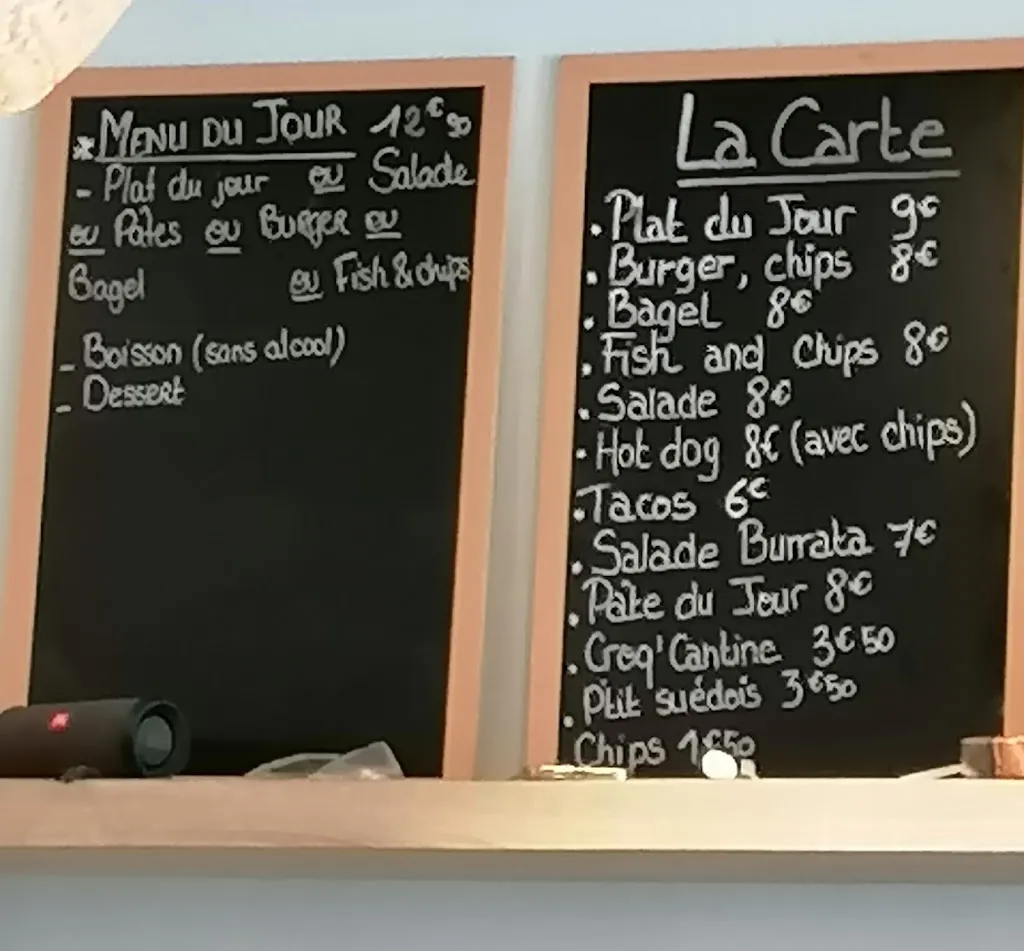 * MENU DU JOUR 12€90
- Plat du jour ou Salade
ou Pâtes ou Burger ou
Bagel ou Fish & chips
- Boisson (sans alcool)
- Dessert
La Carte
. Plat du Jour 9€
. Burger, chips 8€
. Bagel 8€
. Fish and Chips 8€
. Salade 8€
. Hot dog 8€ (avec chips)
. Tacos 6€
. Salade Burrata 7€
. Pâte du Jour 8€
. Croq'Cantine 3€50
. P'tit suédois 3€50
Chips 1€50
JBL